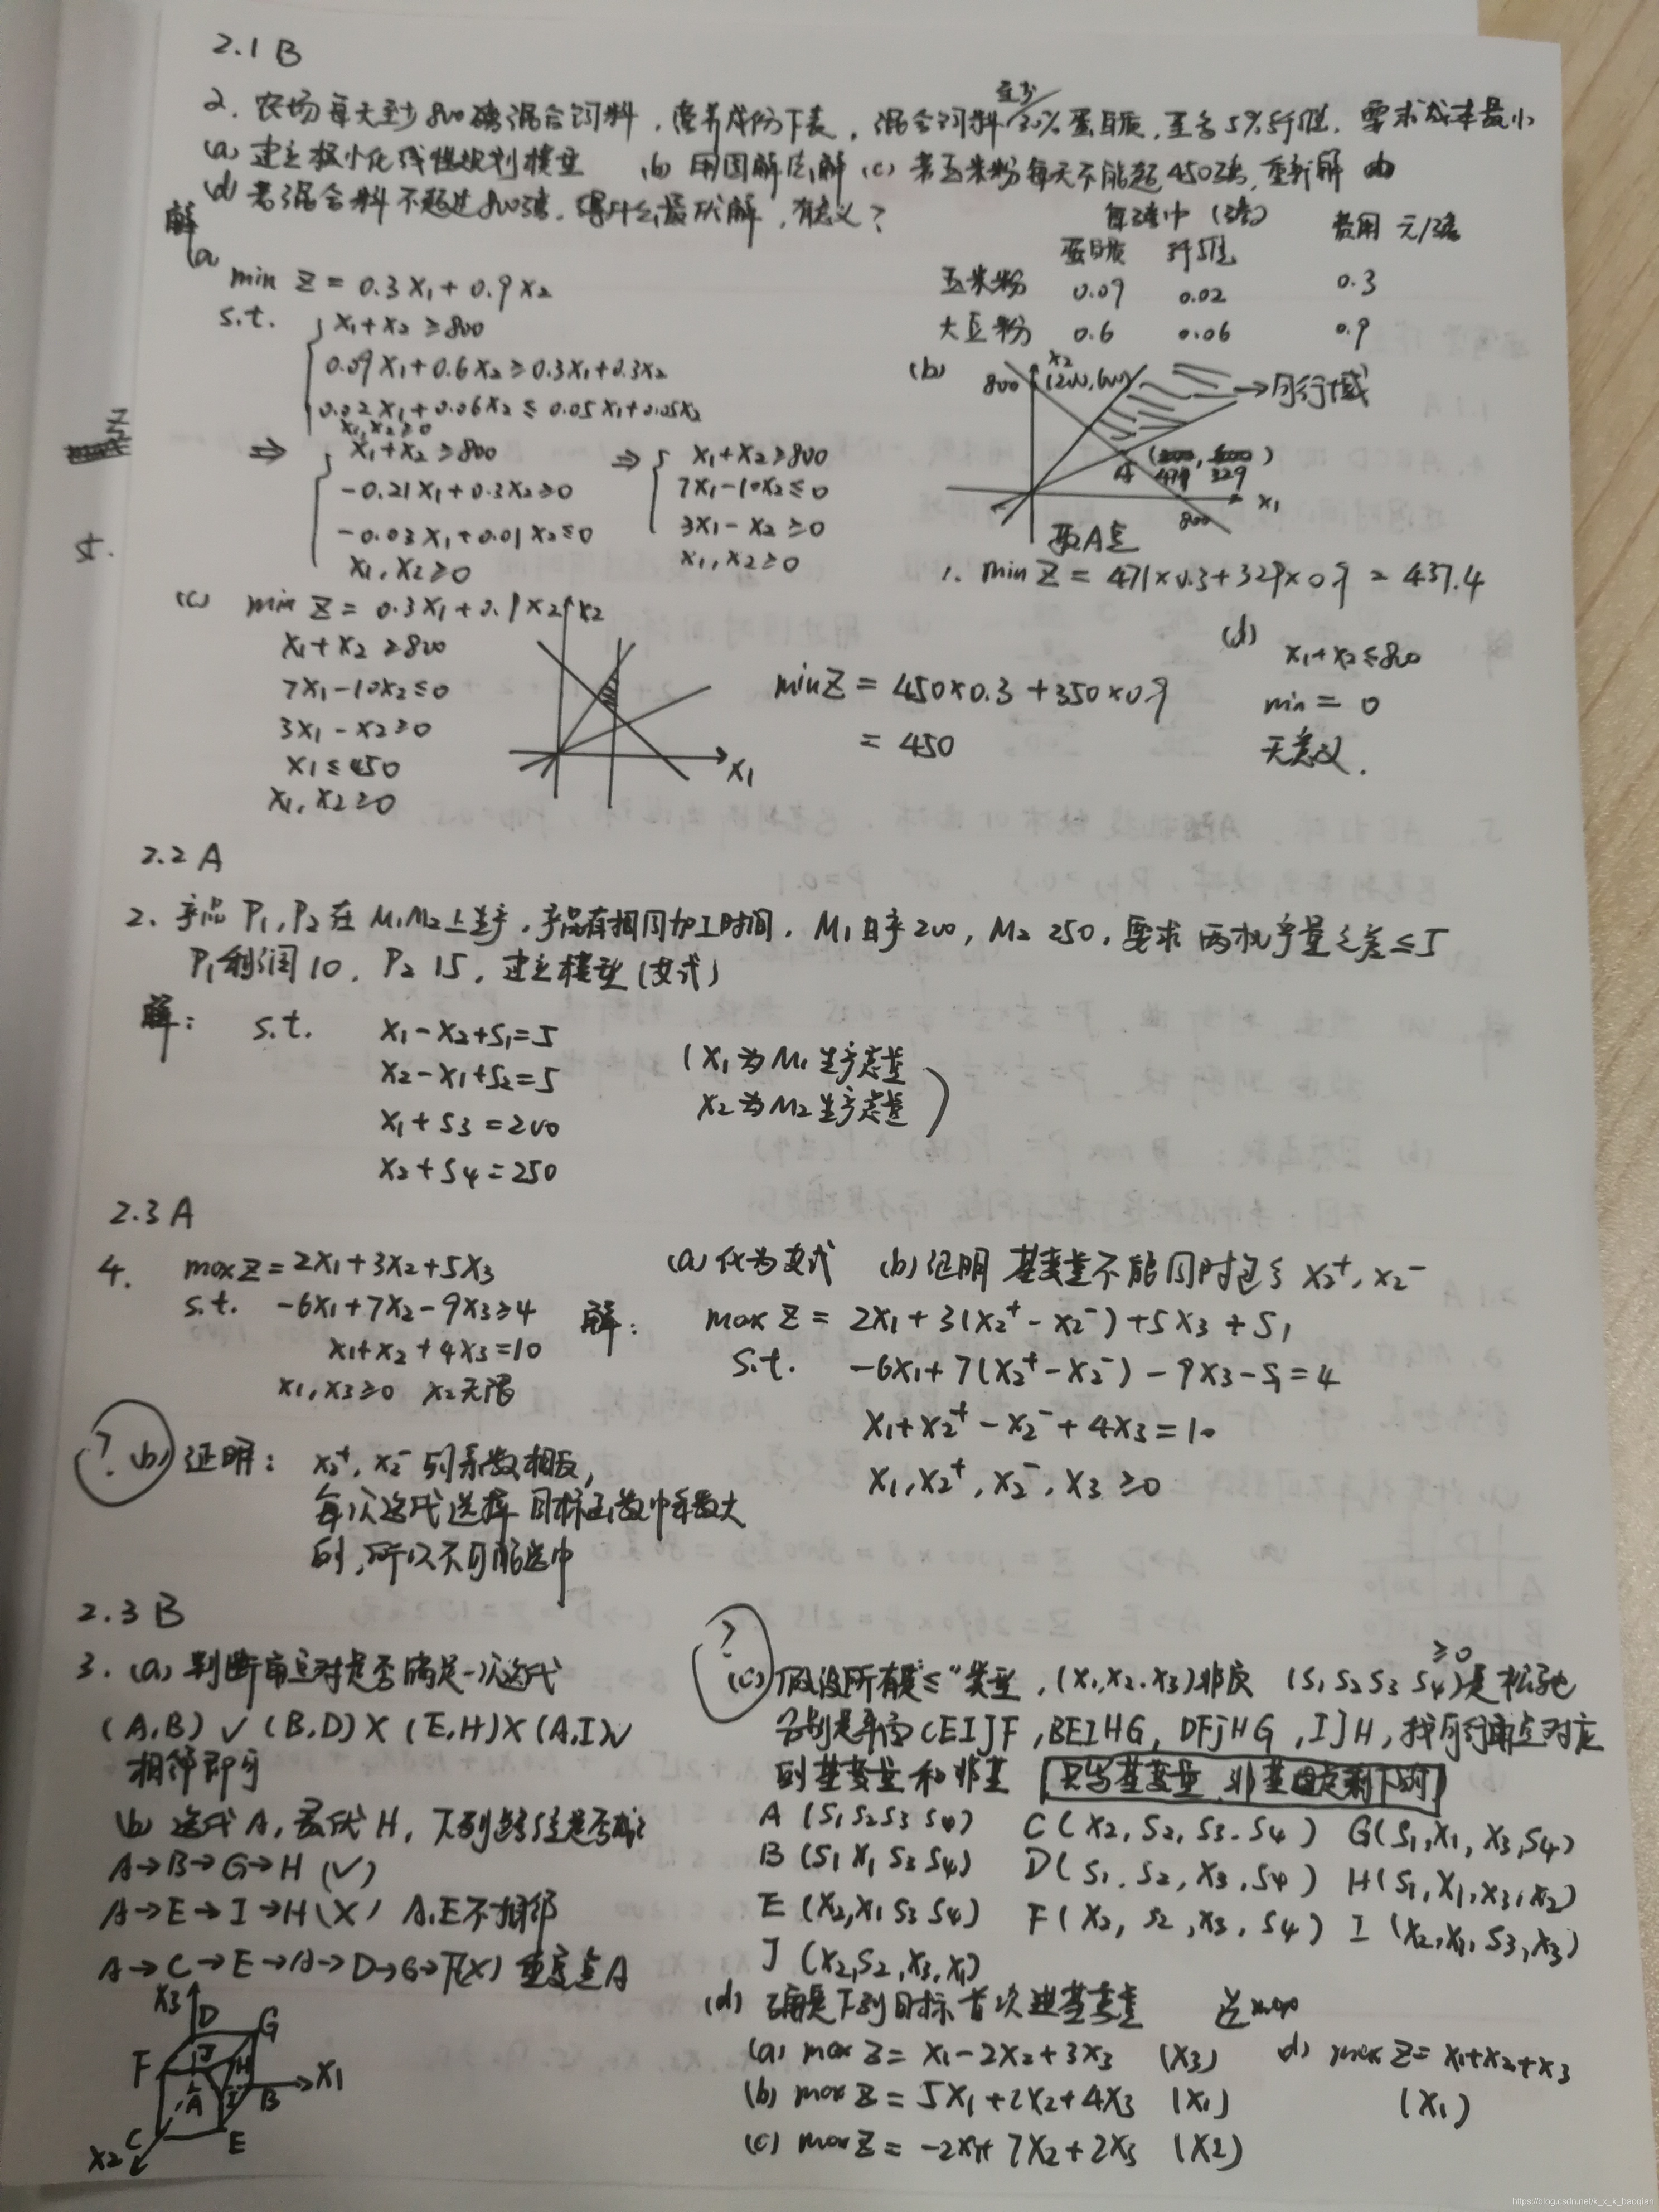 2.1 B
2. 农场每天至少800磅混合饲料, 营养成份下表, 混合饲料至少30%蛋白质, 至多5%纤维, 要求成本最小
(a) 建立极小化线性规划模型 (b) 用图解法解 (c) 若玉米粉每天不能超450磅, 重新解
(d) 若混合料不超过800磅, 得什么最优解, 有意义?
每磅中 (磅) 费用 元/磅
蛋白质 纤维
玉米粉 0.09 0.02 0.3
大豆粉 0.6 0.06 0.9
解
(a
min Z = 0.3X₁+0.9X₂
s.t. X₁+X₂≥800
0.09X₁+0.6X₂≥0.3X₁+0.3X₂
0.02X₁+0.06X₂≤0.05X₁+0.05X₂
X₁,X₂≥0
⇒ X₁+X₂≥800
-0.21X₁+0.3X₂≥0
-0.03X₁+0.01X₂≤0
X₁,X₂≥0
⇒ X₁+X₂≥800
7X₁-10X₂≤0
3X₁-X₂≥0
X₁,X₂≥0
(b) 800 X₂ (200,600) →可行域
A (471, 329)
800 X₁
取A点
∴ min Z = 471×0.3+329×0.9 = 437.4
Z
st.
(c) min Z = 0.3X₁+0.9X₂
X₁+X₂≥800
7X₁-10X₂≤0
3X₁-X₂≥0
X₁≤450
X₁,X₂≥0
X₂
X₁
minZ = 450×0.3+350×0.9
= 450
(d) X₁+X₂≤800
min = 0
无意义.
2.2 A
2. 产品 P₁,P₂在 M₁M₂上生产, 产品有相同加工时间, M₁日产200, M₂ 250, 要求 两机产量之差≤5
P₁利润10, P₂ 15, 建立模型(等式)
解: s.t. X₁-X₂+S₁=5
X₂-X₁+S₂=5
X₁+S₃=200
X₂+S₄=250
(X₁为M₁生产总量
X₂为M₂生产总量)
2.3 A
4. maxZ=2X₁+3X₂+5X₃ (a) 化为等式 (b) 证明 基变量不能同时包含 X₂⁺, X₂⁻
s.t. -6X₁+7X₂-9X₃≥4
X₁+X₂+4X₃=10
X₁,X₃≥0 X₂无限
解: max Z = 2X₁+3(X₂⁺-X₂⁻)+5X₃+S₁
s.t. -6X₁+7(X₂⁺-X₂⁻)-9X₃-S₁=4
X₁+X₂⁺-X₂⁻+4X₃=10
X₁,X₂⁺,X₂⁻,X₃≥0
? (b) 证明: X₂⁺, X₂⁻的系数相反,
每次迭代选择 目标函数中系数大
的, 所以不可能选中
2.3 B
3. (a) 判断角点对是否满足一次迭代
(A,B) ✓ (B,D) X (E,H) X (A,I)✓
相邻即可
(b) 迭代A, 最优H, 下列路径是否成立
A→B→G→H (✓)
A→E→I→H (X) A,E不相邻
A→C→E→A→D→G→F(X) 重复点A
X₃ D G F J H X₁ A I B C E X₂
? (c) 假设所有是"≤"类型, (X₁,X₂,X₃)非负 (S₁ S₂ S₃ S₄)≥0是松弛
分别是平面CEIJF, BEIHG, DFJHG, IJH, 找可行角点对应
的基变量和非基 只写基变量, 非基是剩下的
A (S₁ S₂ S₃ S₄) C (X₂, S₂, S₃, S₄) G(S₁, X₁, X₃, S₄)
B (S₁ X₁ S₃ S₄) D (S₁, S₂, X₃, S₄) H(S₁, X₁, X₃, X₂)
E (X₂, X₁ S₃ S₄) F (X₂, S₂, X₃, S₄) I (X₂, X₁, S₃, X₃)
J (X₂, S₂, X₃, X₁)
(d) 确定下列目标首次进基变量 选max
(a) max Z = X₁-2X₂+3X₃ (X₃) d) max Z= X₁+X₂+X₃
(b) max Z = 5X₁+2X₂+4X₃ (X₁) (X₁)
(c) max Z = -2X₁+7X₂+2X₃ (X2)
https://blog.csdn.net/k_x_k_baoqian